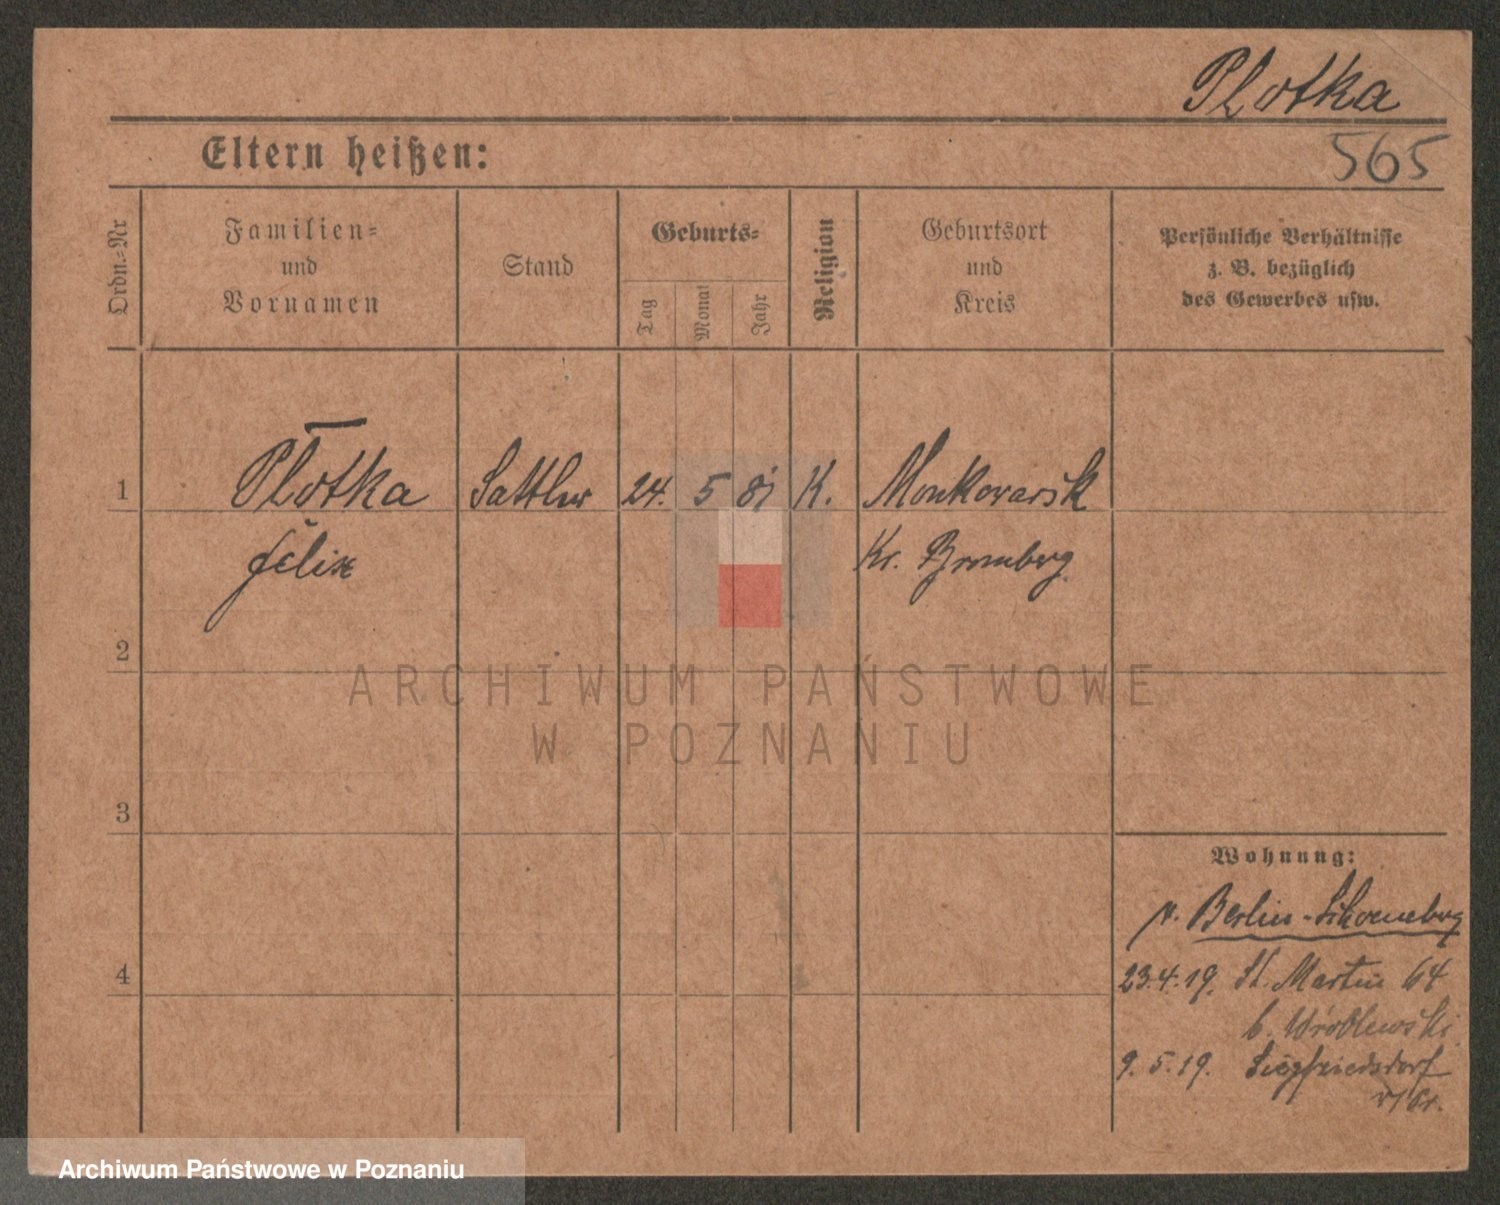 Plotka
Eltern heißen:
565
Ordn.-Nr
Familien-
und
Vornamen
Stand
Geburts-
Tag
Monat
Jahr
Religion
Geburtsort
und
Kreis
Persönliche Verhältnisse
z. B. bezüglich
des Gewerbes usw.
1 Plotka Sattler 24. 5 81 K. Monkowarsk
Felix Kr. Bromberg
2
ARCHIWUM PAŃSTWOWE
W POZNANIU
3
Wohnung:
v. Berlin-Schoeneberg
4
23.4.19. St. Martin 64
b. Wroblewski
9.5.19. Siegfriedsdorf
Archiwum Państwowe w Poznaniu